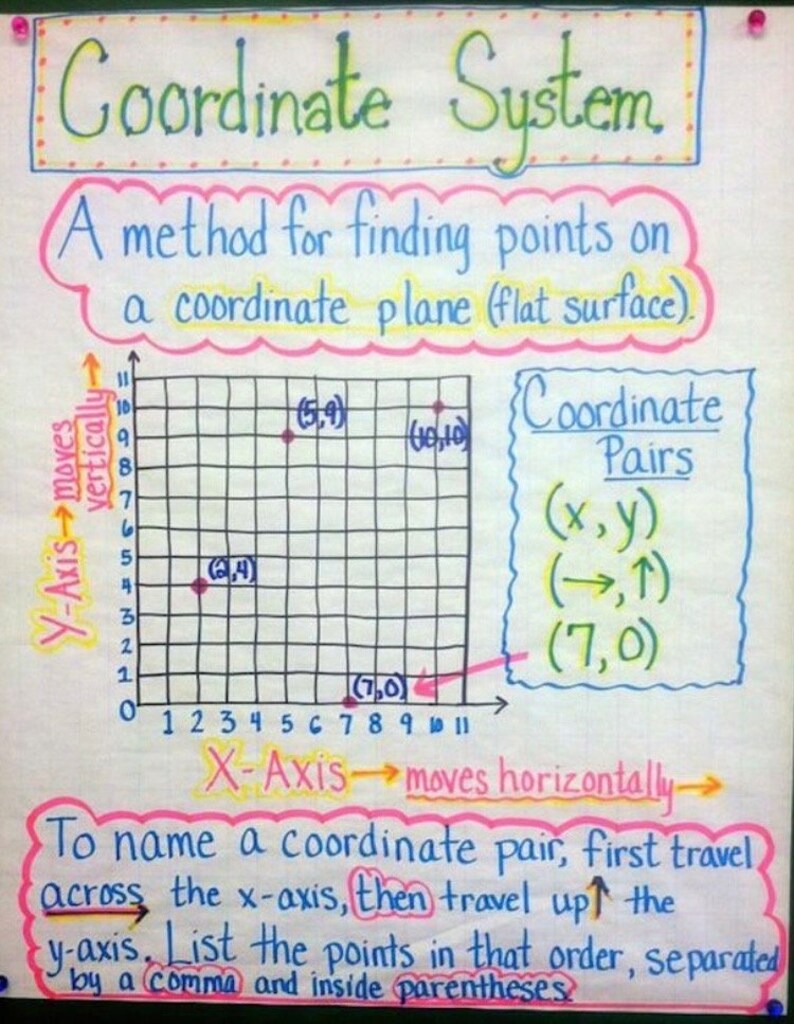 Coordinate System
A method for finding points on
a coordinate plane (flat surface).
Y-Axis → moves
vertically →
11
10
9
8
7
6
5
4
3
2
1
0
(5,9)
(10,10)
(2,4)
(7,0)
1 2 3 4 5 6 7 8 9 10 11
X-Axis → moves horizontally →
Coordinate
Pairs
(x, y)
(→, ↑)
(7, 0)
To name a coordinate pair, first travel
across the x-axis, then travel up ↑ the
y-axis. List the points in that order, separated
by a comma and inside parentheses.